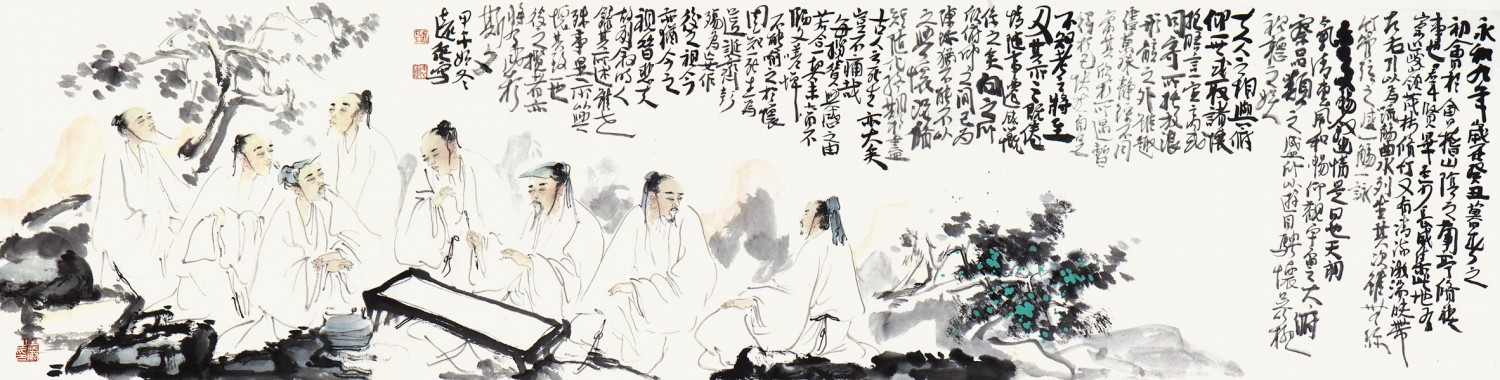 永和九年歲在癸丑暮春之
初會於會稽山陰之蘭亭脩禊
事也群賢畢至少長咸集此地有
崇山峻領茂林脩竹又有清流激湍映帶
左右引以為流觴曲水列坐其次雖無絲
竹管弦之盛一觴一詠
暢敘幽情是日也天朗
氣清惠風和暢仰觀宇宙之大俯
察品類之盛所以遊目騁懷足以極
視聽之娛
夫人之相與俯
仰一世或取諸懷
抱晤言一室之內或
因寄所託放浪
形骸之外雖趣
舍萬殊靜躁不同
當其欣於所遇暫
得於己快然自足
不知老之將至
及其所之既倦
情隨事遷感慨
係之矣向之所
欣俯仰之間已為
陳迹猶不能不以
之興懷況脩
短隨化終期於盡
古人云死生亦大矣
豈不痛哉
每攬昔人興感之由
若合一契未嘗不
臨文嗟悼
不能喻之於懷
固知一死生為
虛誕齊彭
殤為妄作
後之視今
亦猶今之
視昔悲夫
故列敘時人
錄其所述雖世
殊事異所以興
懷其致一也
後之攬者亦
將有感於
斯文
甲午始冬